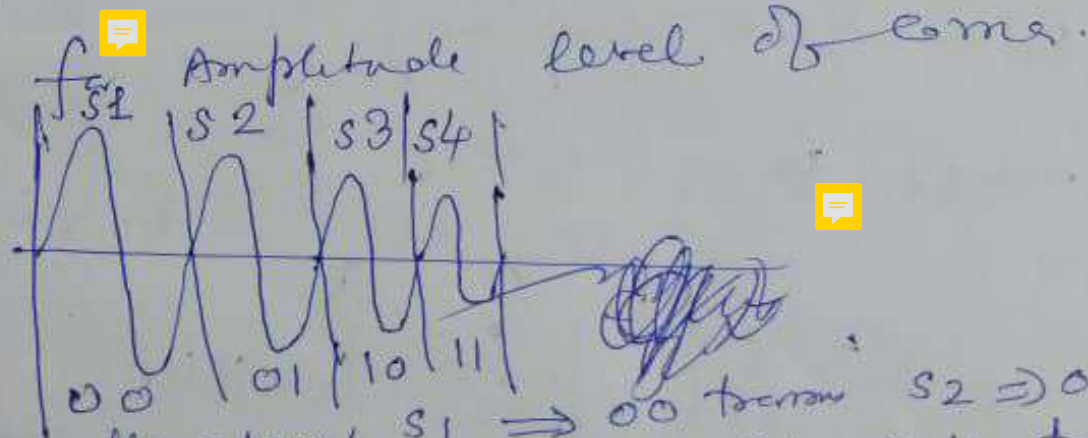 for Amplitude level of
S1 S2 S3 S4
00 01 10 11
S1 ⇒ 00 S2 ⇒ 0